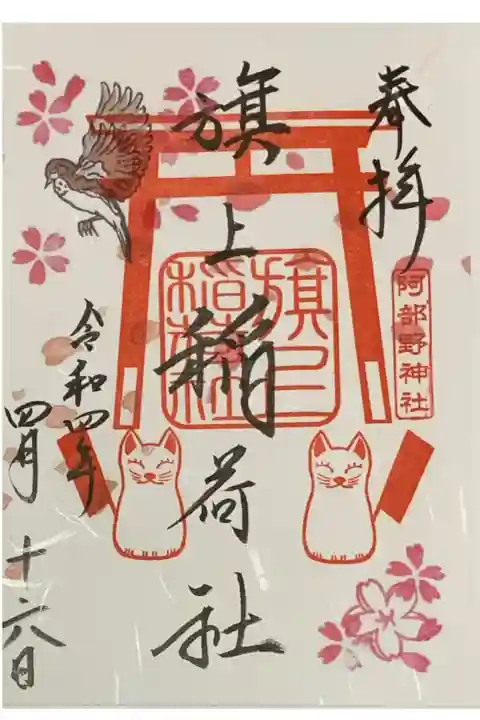 奉拝
阿部野神社
旗上稲荷社
令和四年
四月十六日